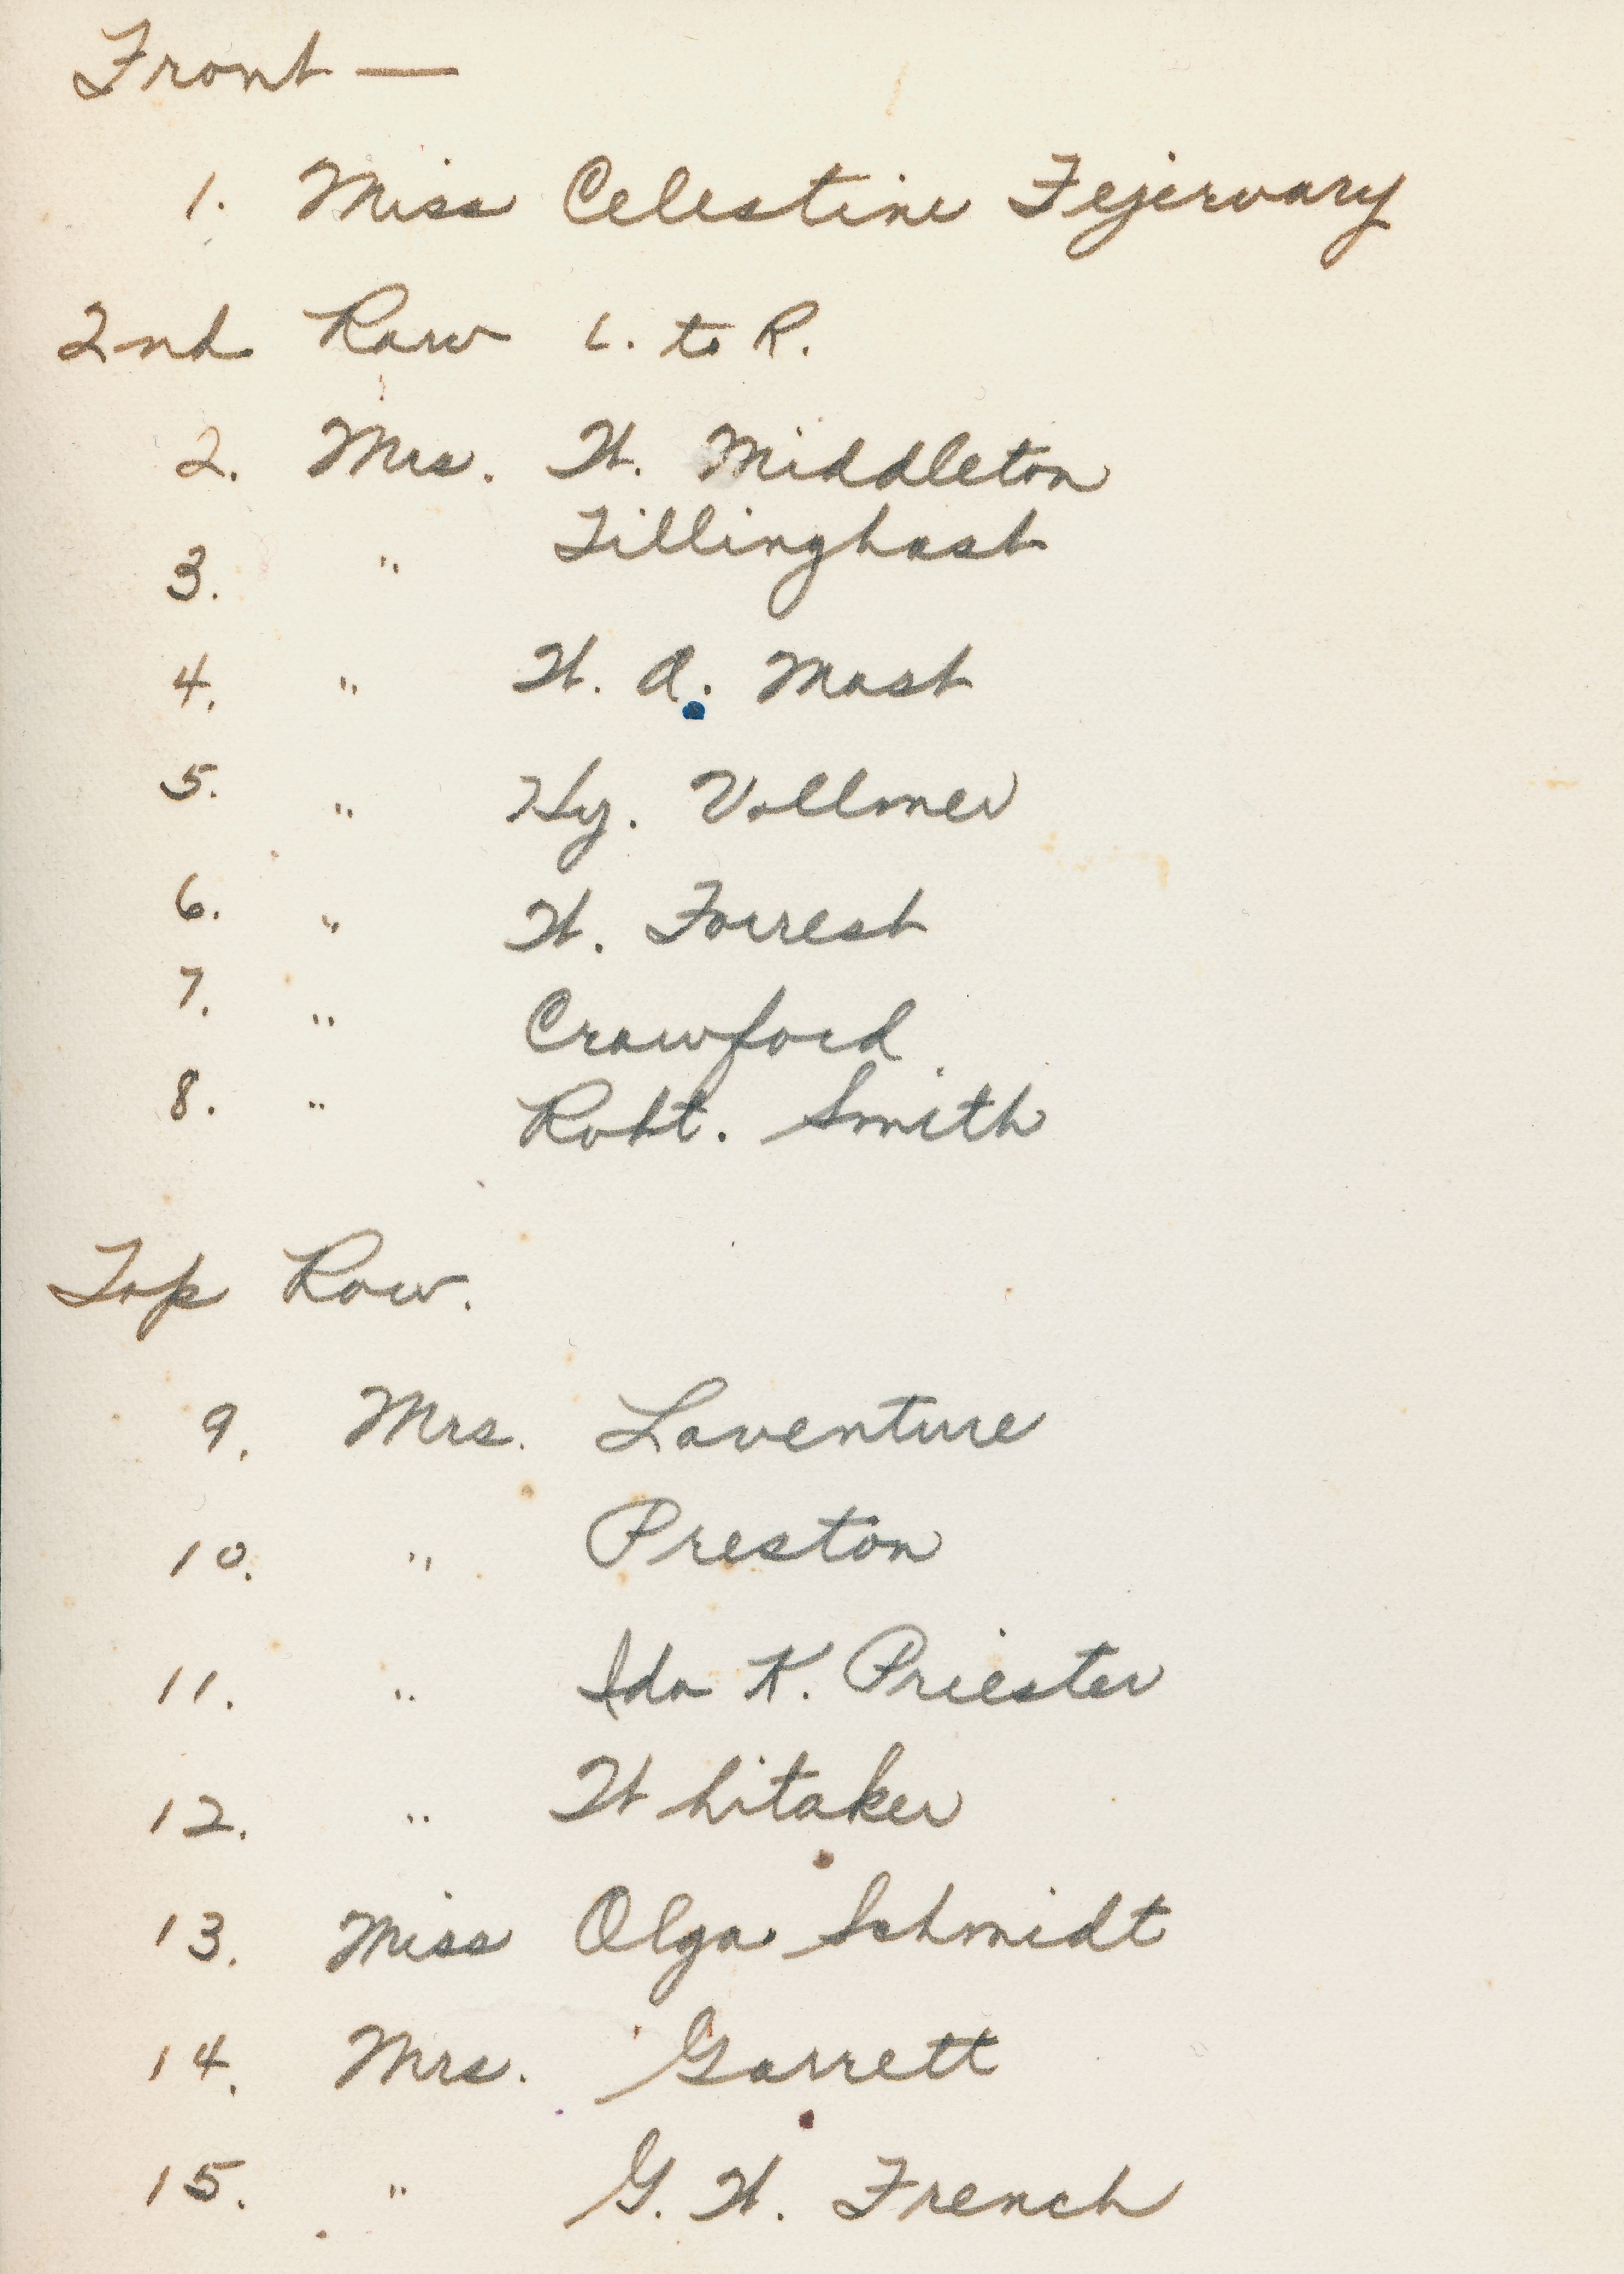 Front —
1. Miss Celestine Fejervary
2nd Row L. to R.
2. Mrs. W. Middleton
3. " Tillinghast
4. " W. A. Mast
5. " Hy. Vollmer
6. " W. Forrest
7. " Crawford
8. " Robt. Smith
Top Row.
9. Mrs. Laventure
10. " Preston
11. " Ida K. Priester
12. " Whitaker
13. Miss Olga Schmidt
14. Mrs. Garrett
15. " G. W. French